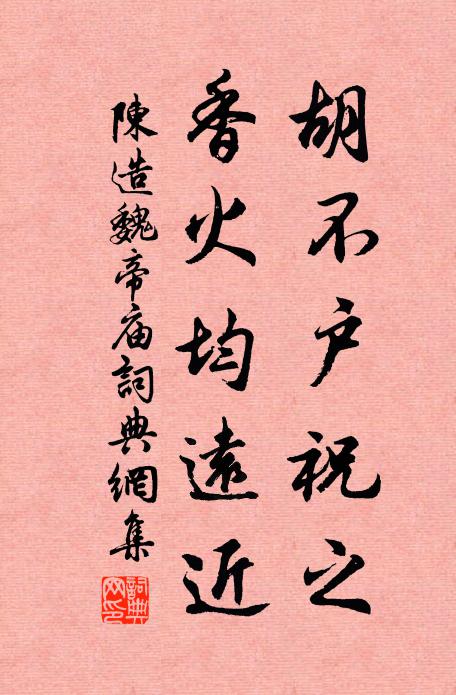 胡不户祝之
香火均遠近
陳造魏帝庙詞典網集
詞典网印